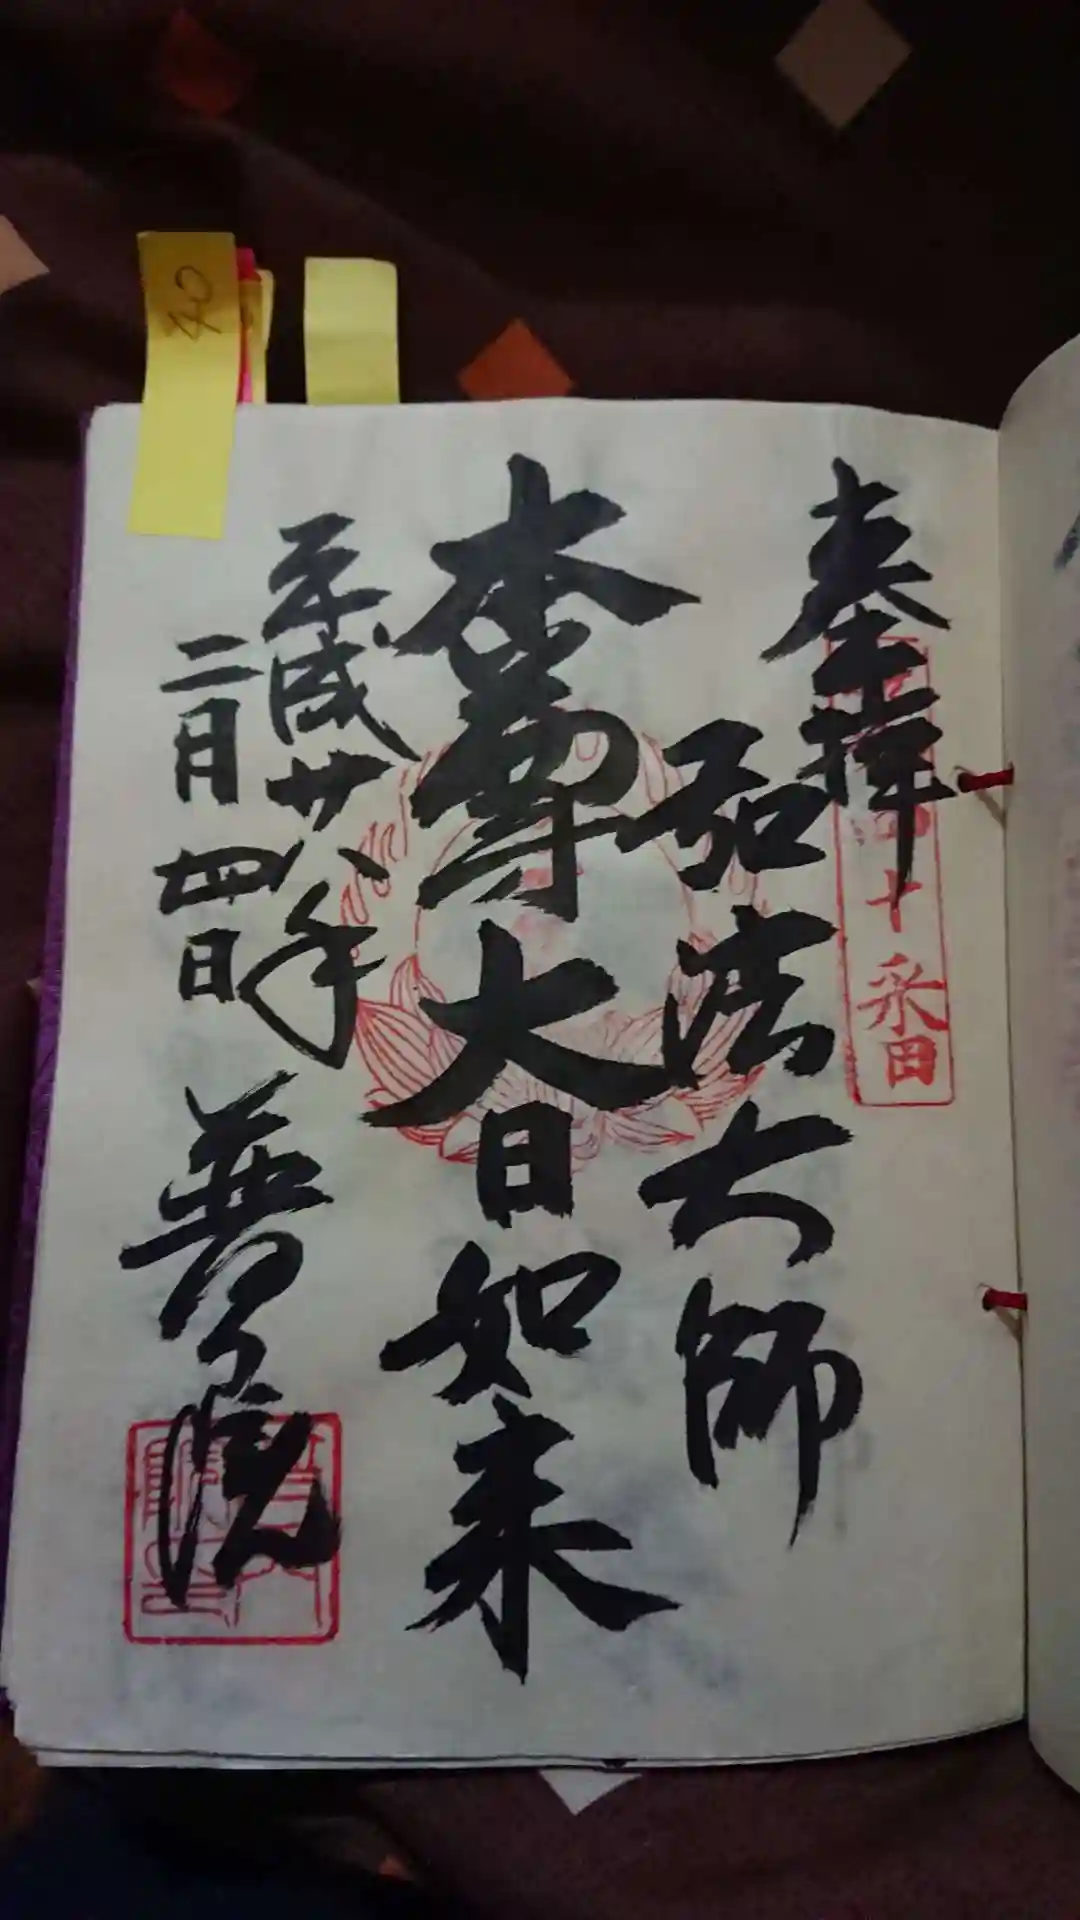 奉拝
弘法大師
本尊大日如来
平成廿八年
二月四日
普門院
十 永田